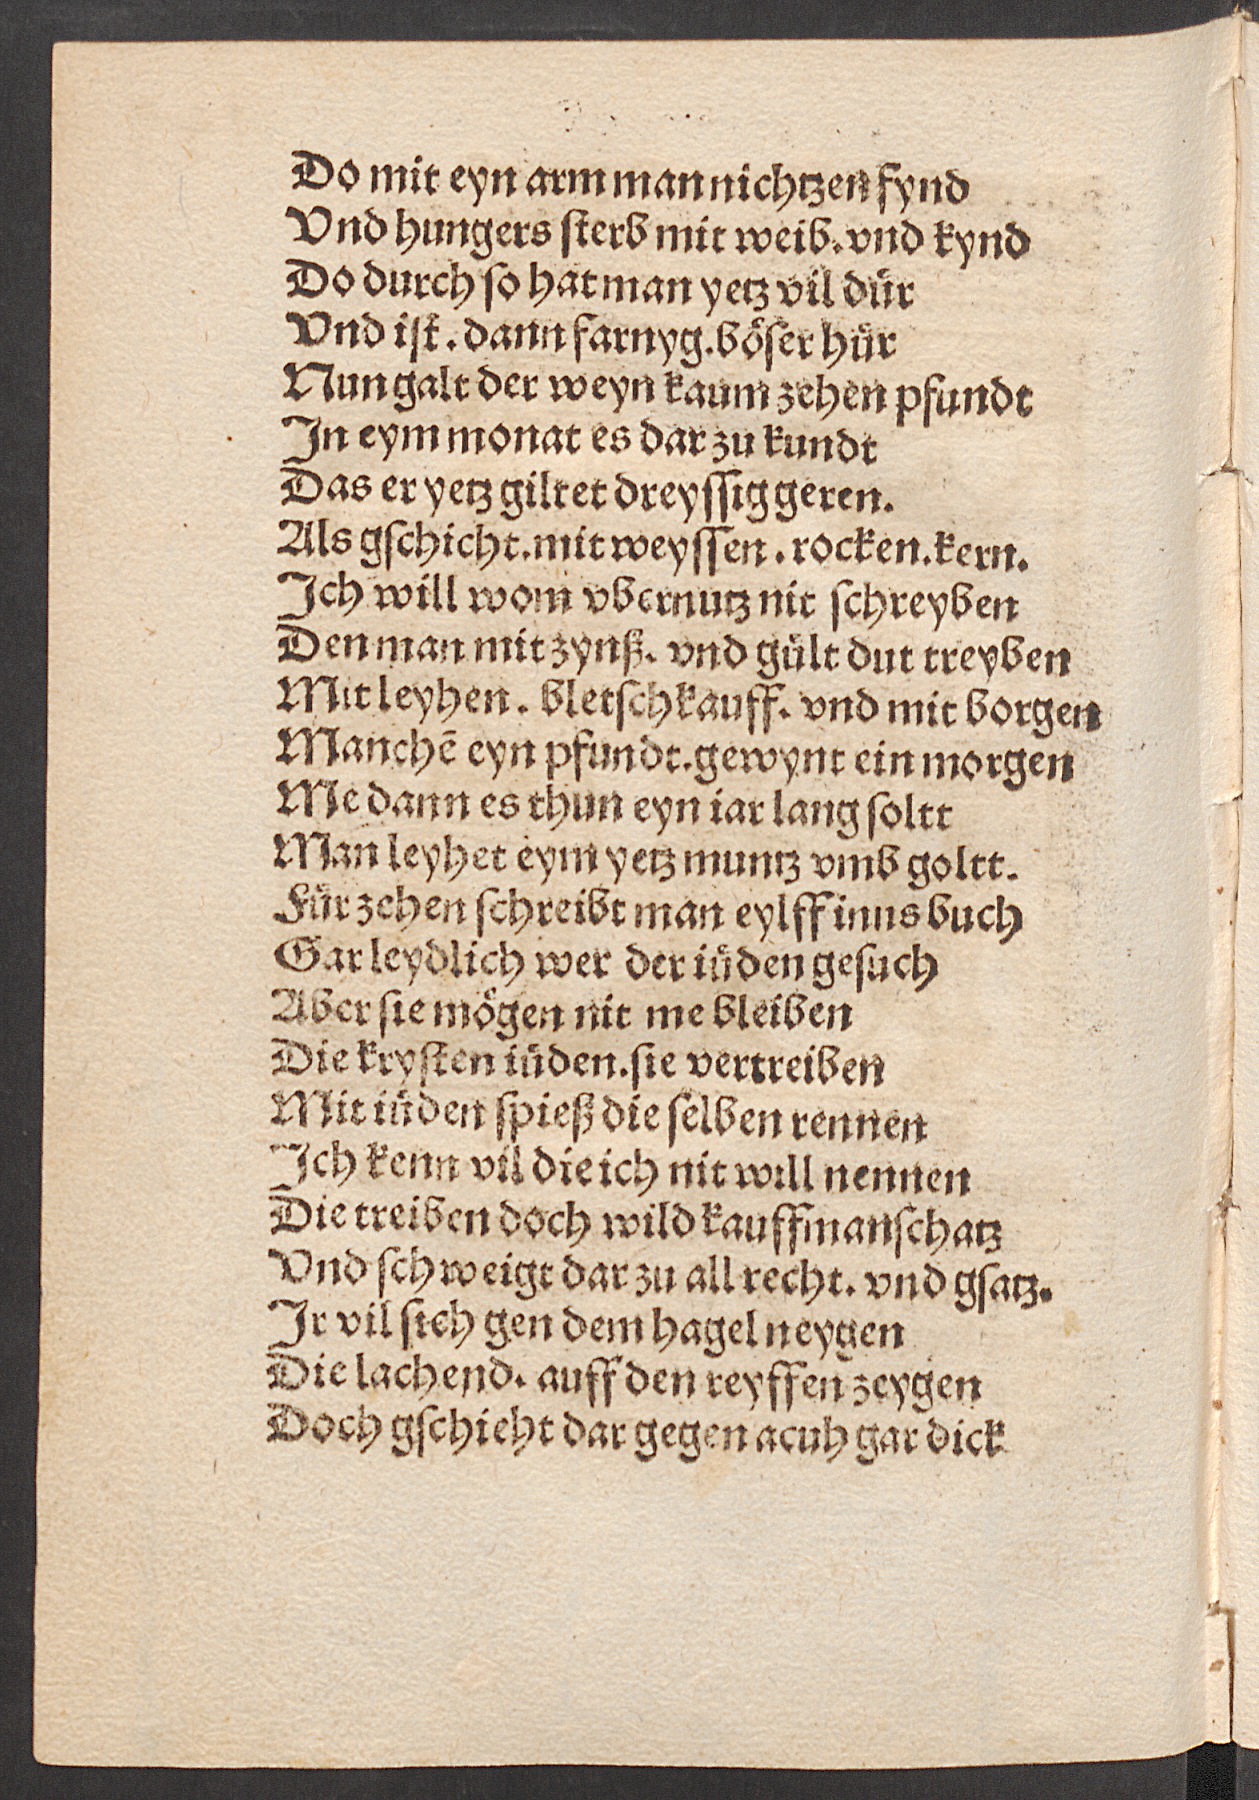 Do mit eyn arm man nichtzen fynd
Vnd hungers ſterb mit weib. vnd kynd
Do durch ſo hat man yetz vil dür
Vnd iſt. dann farnyg. böſer hür
Nun galt der weyn kaum zehen pfundt
In eym monat es dar zu kundt
Das er yetz giltet dreyſſig geren.
Als gſchicht. mit weyſſen. rocken. kern.
Ich will wom vbernutz nit ſchreyben
Den man mit zynß. vnd gült dut treyben
Mit leyhen. bletſchkauff. vnd mit borgen
Manchē eyn pfundt. gewynt ein morgen
Me dann es thun eyn iar lang ſoltt
Man leyhet eym yetz muntz vmb goltt.
Für zehen ſchreibt man eylff inns buch
Gar leydlich wer der iüden geſuch
Aber ſie mögen nit me bleiben
Die kryſten iüden. ſie vertreiben
Mit iüden ſpieß die ſelben rennen
Ich kenn vil die ich nit will nennen
Die treiben doch wild kauffmanſchatz
Vnd ſchweigt dar zu all recht. vnd gſatz.
Ir vil ſich gen dem hagel neygen
Die lachend. auff den reyffen zeygen
Doch gſchieht dar gegen acuh gar dick